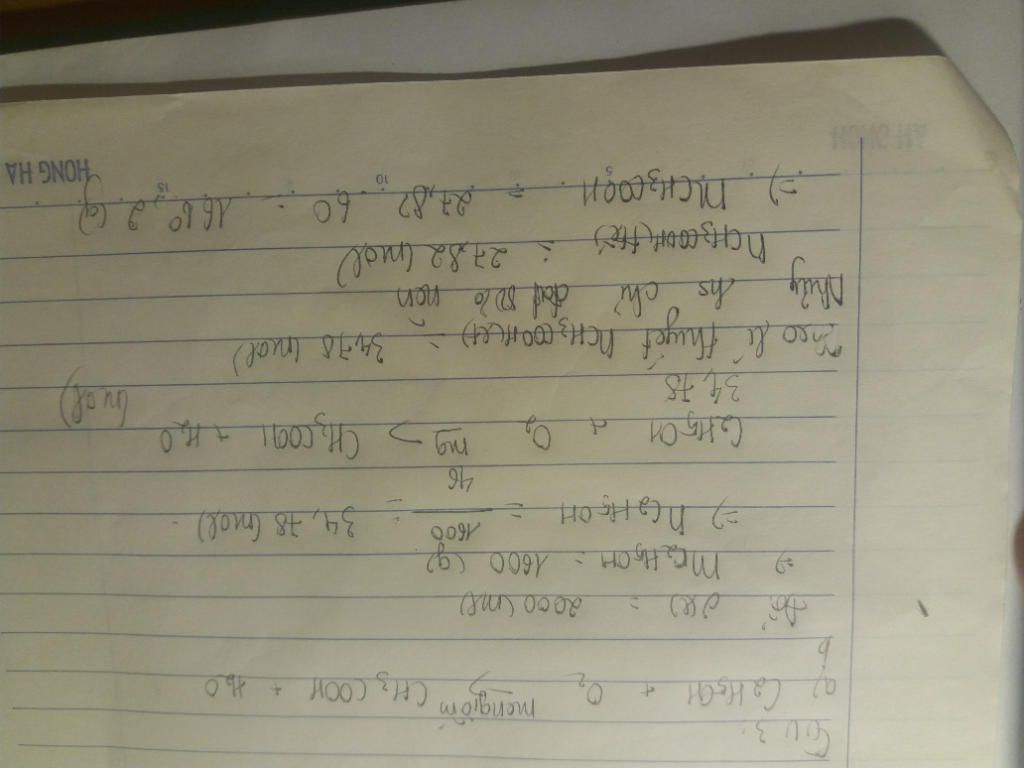 Câu 3:
a) C2H5OH + O2 mengiấm → CH3COOH + H2O
b
Đổi 2(l) = 2000 (ml)
=> mC2H5OH = 1600 (g)
=> nC2H5OH = 1600/46 = 34,78 (mol)
C2H5OH + O2 mg → CH3COOH + H2O
34,78 (mol)
Theo lí thuyết nCH3COOH(LT) = 34,78 (mol)
Nhưng hs chỉ đạt 80% nên
nCH3COOH(TT) = 27,82 (mol)
=> mCH3COOH = 27,82 . 60 = 1669,2 (g)
HONG HA
HONG HA